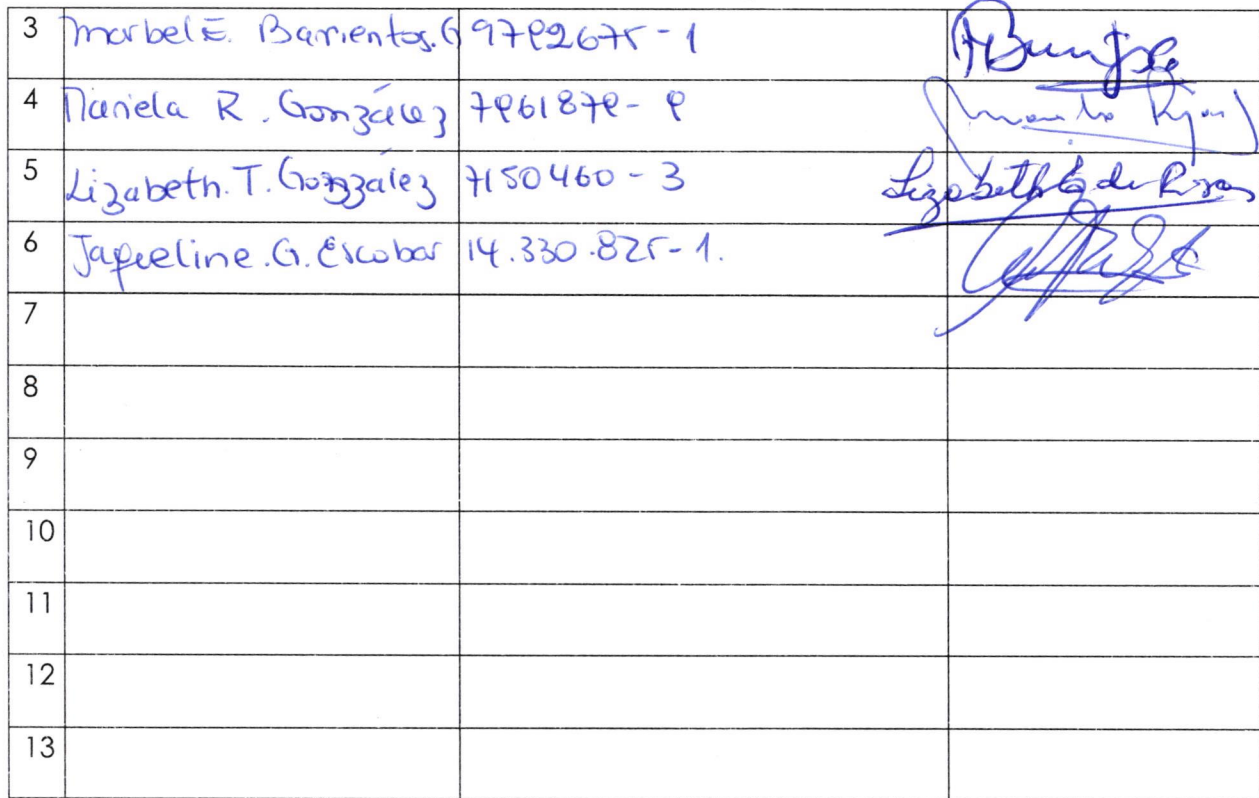 3 Marbel E. Barrientos. G 9792675-1
4 Mariela R. González 7961879-9
5 Lizabeth. T. González 7150460-3 Lizabeth G de Rojas
6 Jaqueline. G. Escobar 14.330.825-1.
7
8
9
10
11
12
13